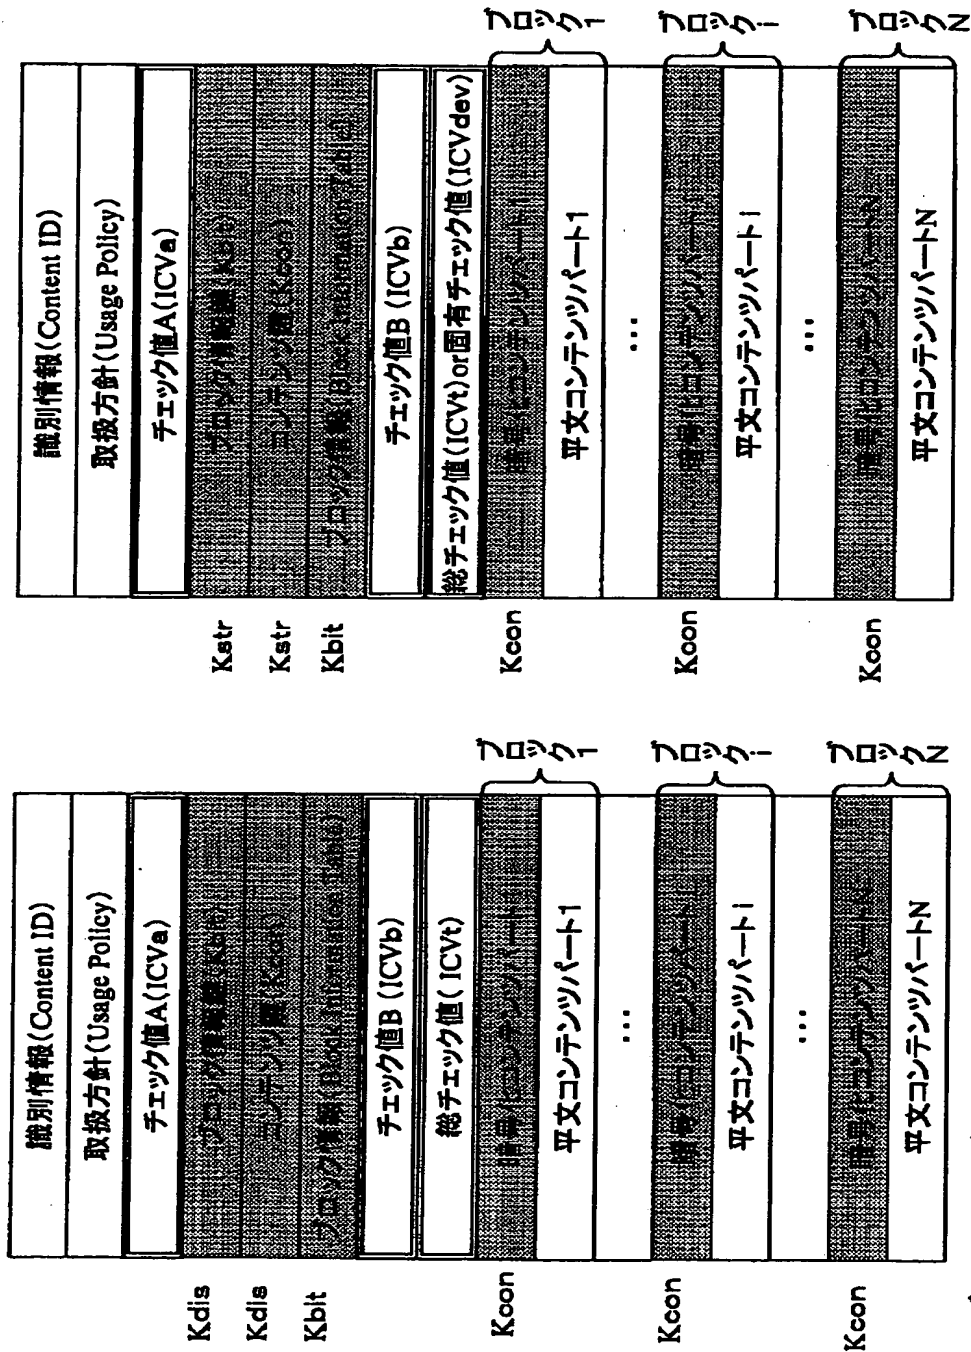 識別情報(Content ID)
取扱方針(Usage Policy)
チェック値A(ICVa)
Kdis ブロック情報鍵(Kbit)
Kdis コンテンツ鍵(Kcon)
Kbit ブロック情報(Block Information Table)
チェック値B(ICVb)
総チェック値(ICVt)
Kcon 暗号化コンテンツパート1
平文コンテンツパート1
ブロック1
...
Kcon 暗号化コンテンツパートi
平文コンテンツパートi
ブロックi
...
Kcon 暗号化コンテンツパートN
平文コンテンツパートN
ブロックN
識別情報(Content ID)
取扱方針(Usage Policy)
チェック値A(ICVa)
Kstr ブロック情報鍵(Kbit)
Kstr コンテンツ鍵(Kcon)
Kbit ブロック情報(Block Information Table)
チェック値B(ICVb)
総チェック値(ICVt)or固有チェック値(ICVdev)
Kcon 暗号化コンテンツパート1
平文コンテンツパート1
ブロック1
...
Kcon 暗号化コンテンツパートi
平文コンテンツパートi
ブロックi
...
Kcon 暗号化コンテンツパートN
平文コンテンツパートN
ブロックN